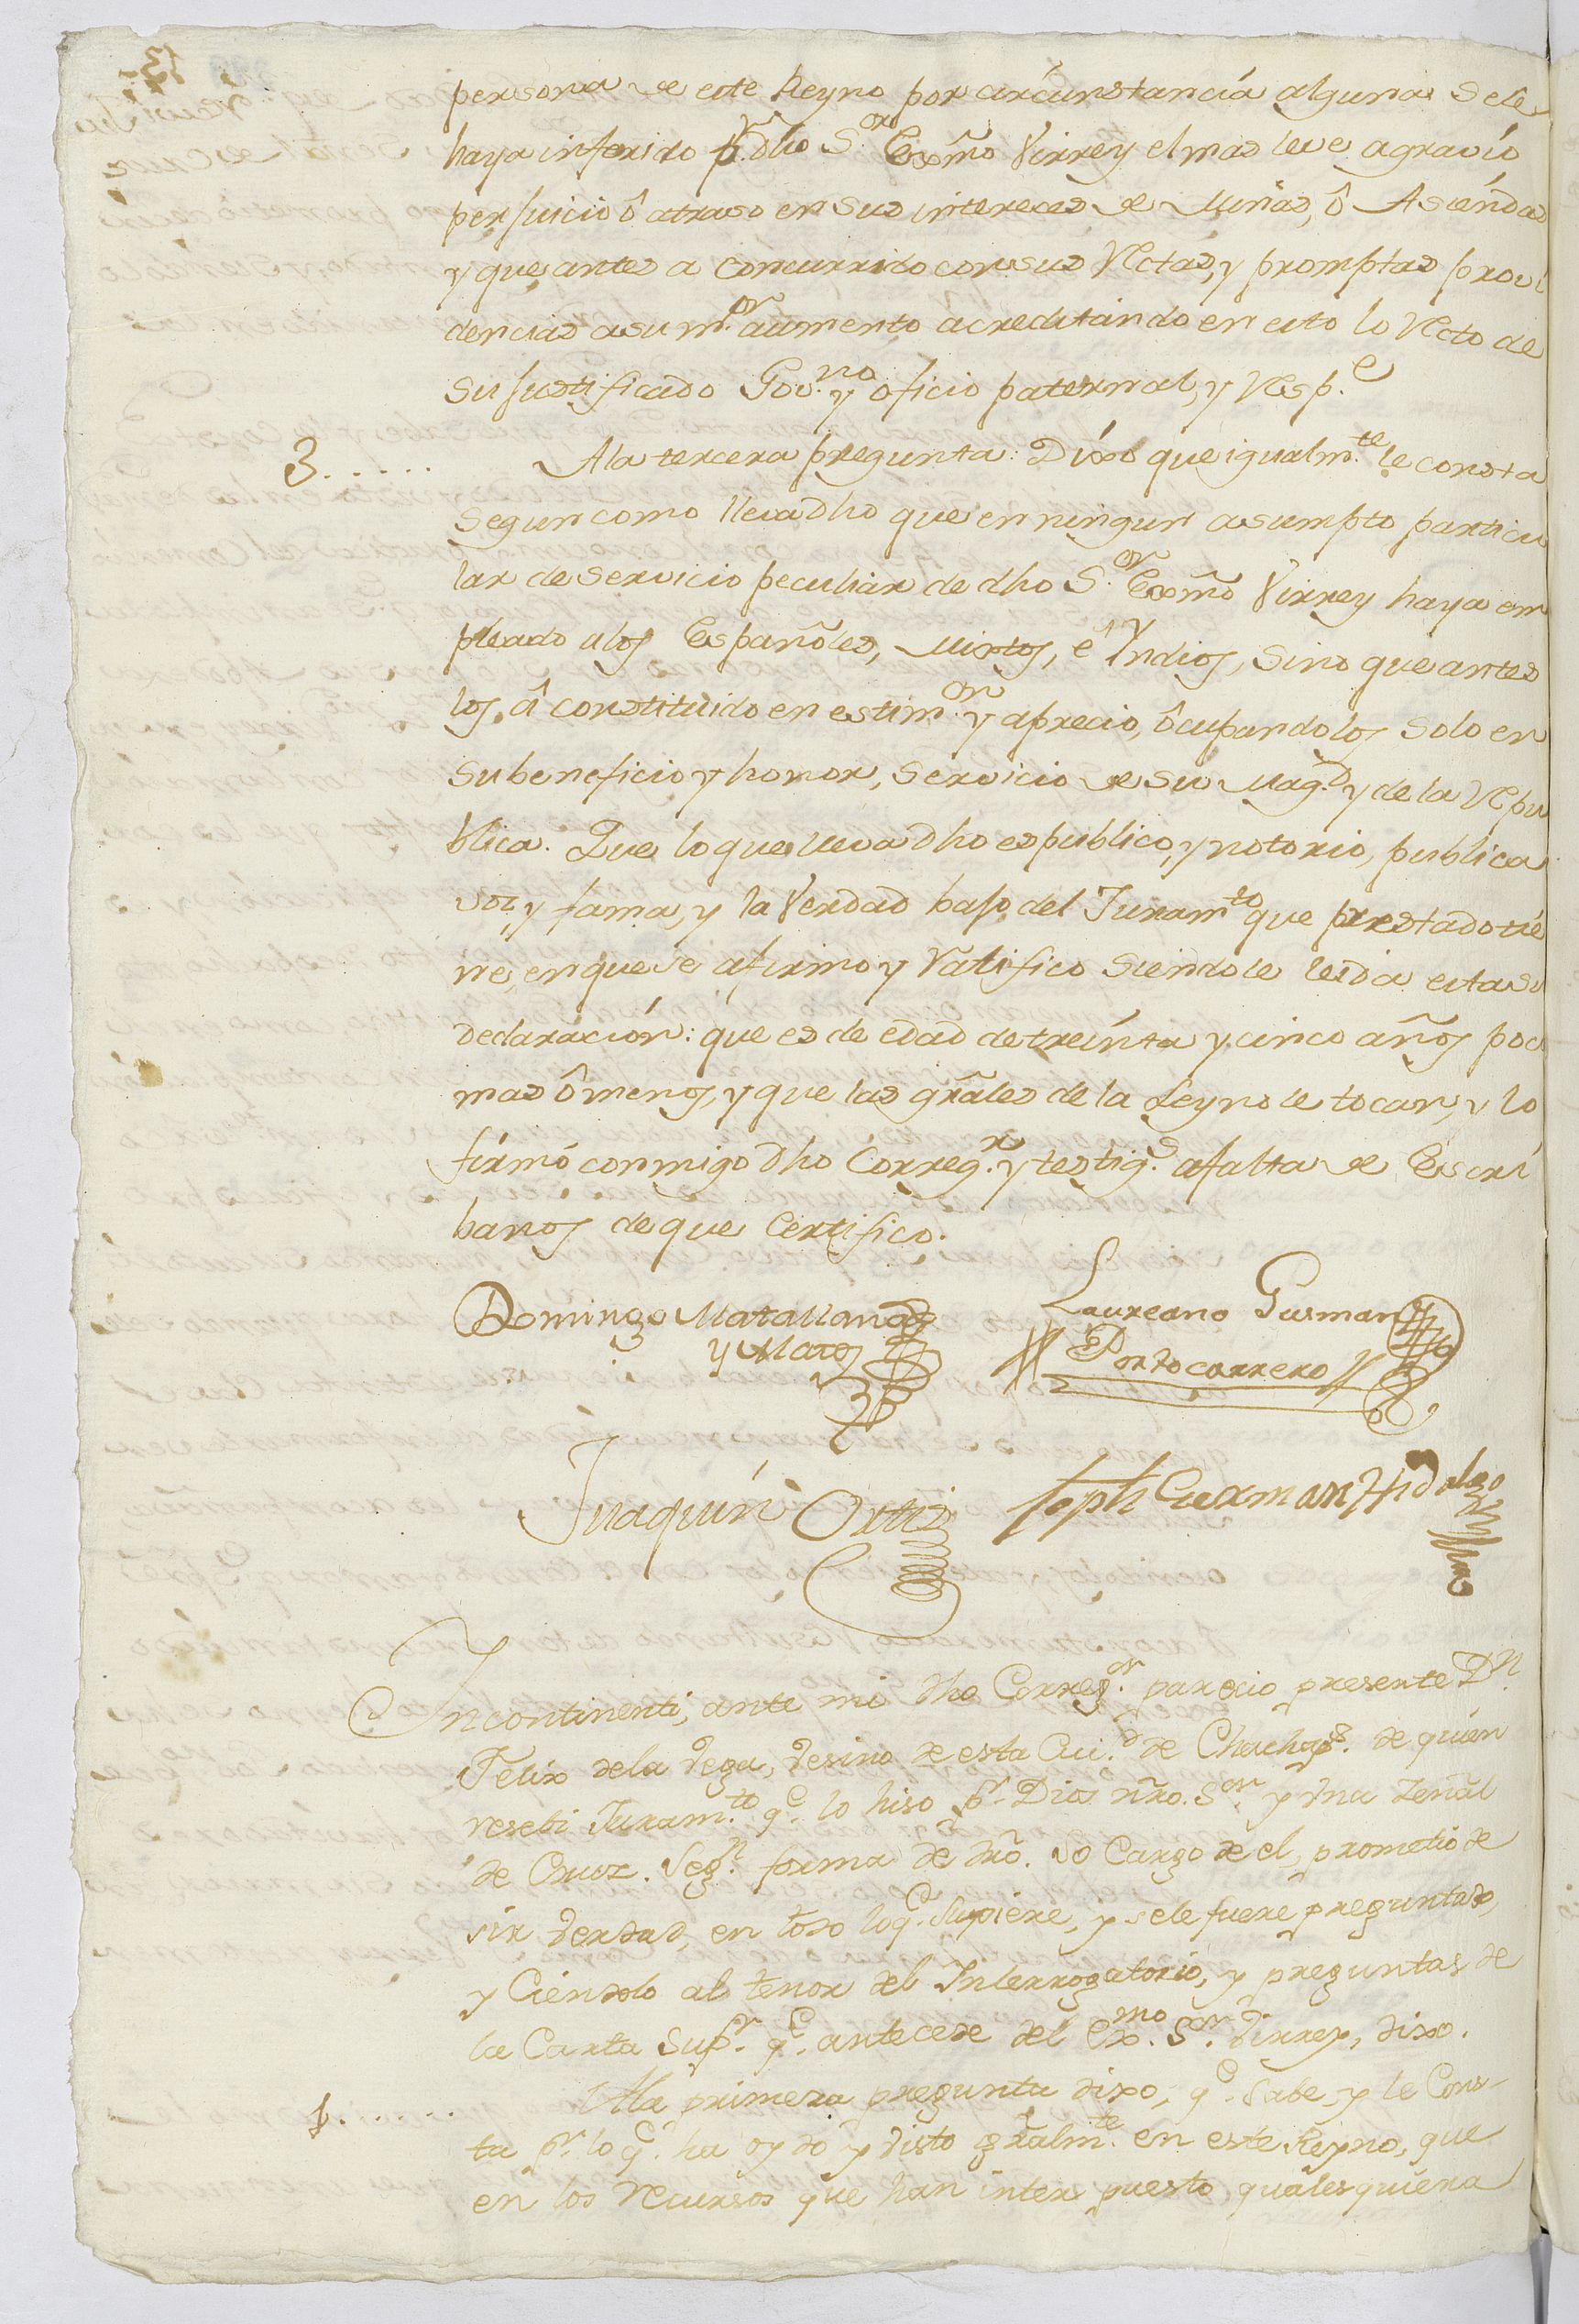 persona de este Reyno por circunstancia alguna se le
haya inferido pr. dho Sor. Exmõ Virrey el mas leve agravio
perjuicio ô atraso en sus intereces de Minas, ô Asiendas
y que antes a concurrido con sus Rectas, y promptas provi
dencias a su mor. aumento acreditando en esto lo Recto de
su justificado Govno. y oficio paternal, y Respe.
3......
A la tercera pregunta: Dixo que igualmte. le consta
segun como lleva dho que en ningun asumpto particu
lar de servicio peculiar de dho Sor. Exmõ Virrey haya em
pleado a los Españoles, Mixtos, e Yndios, sino que antes
los â constituido en estimon. y aprecio, ôcupandolos solo en
su beneficio y honor, servicio de su Magd. y de la Repu
blica. Que lo que lleva dho es publico, y notorio, publica
vos, y fama, y la Verdad bajo del Juramto que prestado tie
ne, en que se afirmo y Ratifico siendole leida esta su
declaracion: que es de edad de treinta y cinco años poco
mas ô menos, y que las grãles de la Ley no le tocan, y lo
firmó conmigo dho Corregr. y testigs. a falta de Escri
banos de que Certifico.
Domingo Matallana
y Matos
Laureano Gusman
Portocarrero
Juaquin Ortiz
Joph German Hidalgo
Incontinenti, ante mi dho Corregor. parecio presente Dn.
Felix de la Vega, Vesino de esta Ciud. de Chachaps. de quien
resebi Juramto. qe. lo hiso pr. Dios nrõ. Sor. y vna señal
de Cruz. Segn. forma de drõ. so Cargo de el, prometio de
sir Verdad, en todo loqe. supiere, y se le fuere preguntado,
y Ciendolo al tenor del Interrogatorio, y preguntas de
la Carta Supr. qe. antecede del Exmo. Sor. Virrey, dixo.
1......
A la primera pregunta dixo, qe. Sabe, y le Cons-
ta pr. lo qe. ha oydo y Visto grãlmte. en este Reyno, que
en los Recursos que han interpuesto qualesquiera